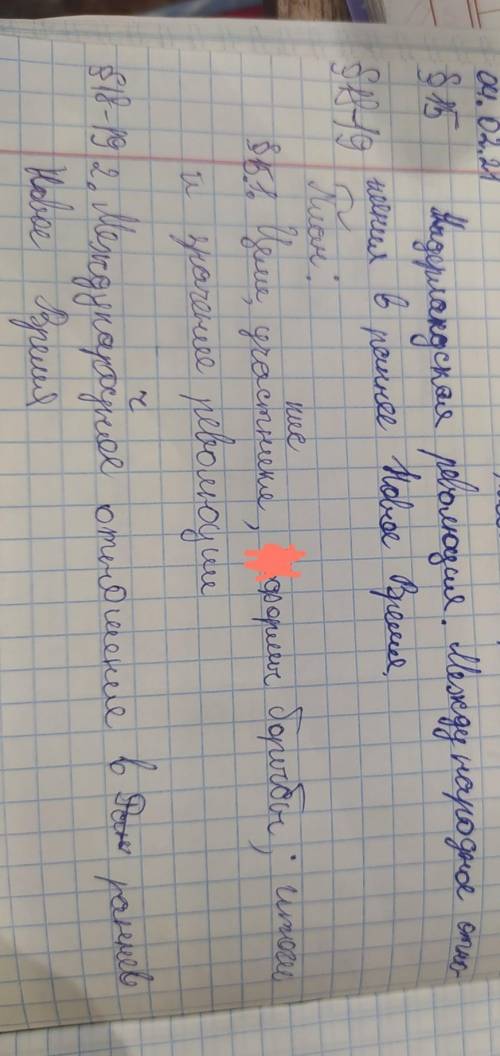 04.02.21
§ 15 Нидерландская революция. Международное отно-
§18-19 нения в раннее Новое Время.
План:
§15.1. Цели, участники, формы борьбы; итоги
ние
и значение революции
§18-19 2. Международное отношения в раннев
ч
Новое Время